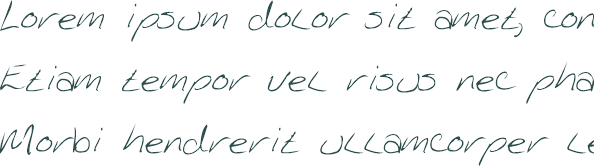 Lorem ipsum dolor sit amet, con
Etiam tempor vel risus nec pha
Morbi hendrerit ullamcorper le